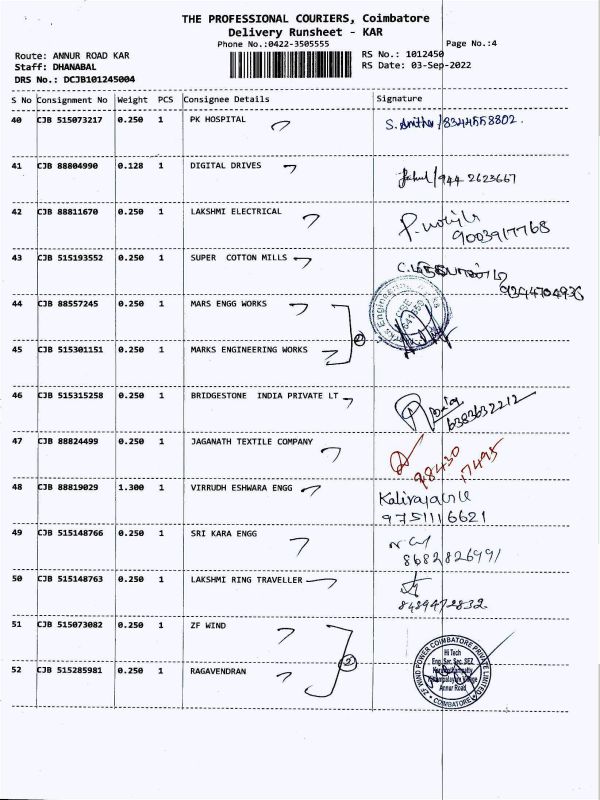 THE PROFESSIONAL COURIERS, Coimbatore
Delivery Runsheet - KAR
Phone No.:0422-3505555
Page No.:4
Route: ANNUR ROAD KAR
RS No.: 1012450
Staff: DHANABAL
RS Date: 03-Sep-2022
DRS No.: DCJB101245004
S No Consignment No Weight PCS Consignee Details Signature
40 CJB 515073217 0.250 1 PK HOSPITAL S. /8344558802.
41 CJB 88804990 0.128 1 DIGITAL DRIVES /944 2623667
42 CJB 88811670 0.250 1 LAKSHMI ELECTRICAL P.
9003917768
43 CJB 515193552 0.250 1 SUPER COTTON MILLS C.
44 CJB 88557245 0.250 1 MARS ENGG WORKS
45 CJB 515301151 0.250 1 MARKS ENGINEERING WORKS
46 CJB 515315258 0.250 1 BRIDGESTONE INDIA PRIVATE LT
6383632212
47 CJB 88824499 0.250 1 JAGANATH TEXTILE COMPANY
98430
17495
48 CJB 88819029 1.300 1 VIRRUDH ESHWARA ENGG
9751116621
49 CJB 515148766 0.250 1 SRI KARA ENGG
8682826991
50 CJB 515148763 0.250 1 LAKSHMI RING TRAVELLER
8489472832
51 CJB 515073082 0.250 1 ZF WIND
2
52 CJB 515285981 0.250 1 RAGAVENDRAN
ZF WIND POWER COIMBATORE PRIVATE LIMITED
Hi Tech
Eng. Ser. Sec. SEZ
Annur Road
COIMBATORE